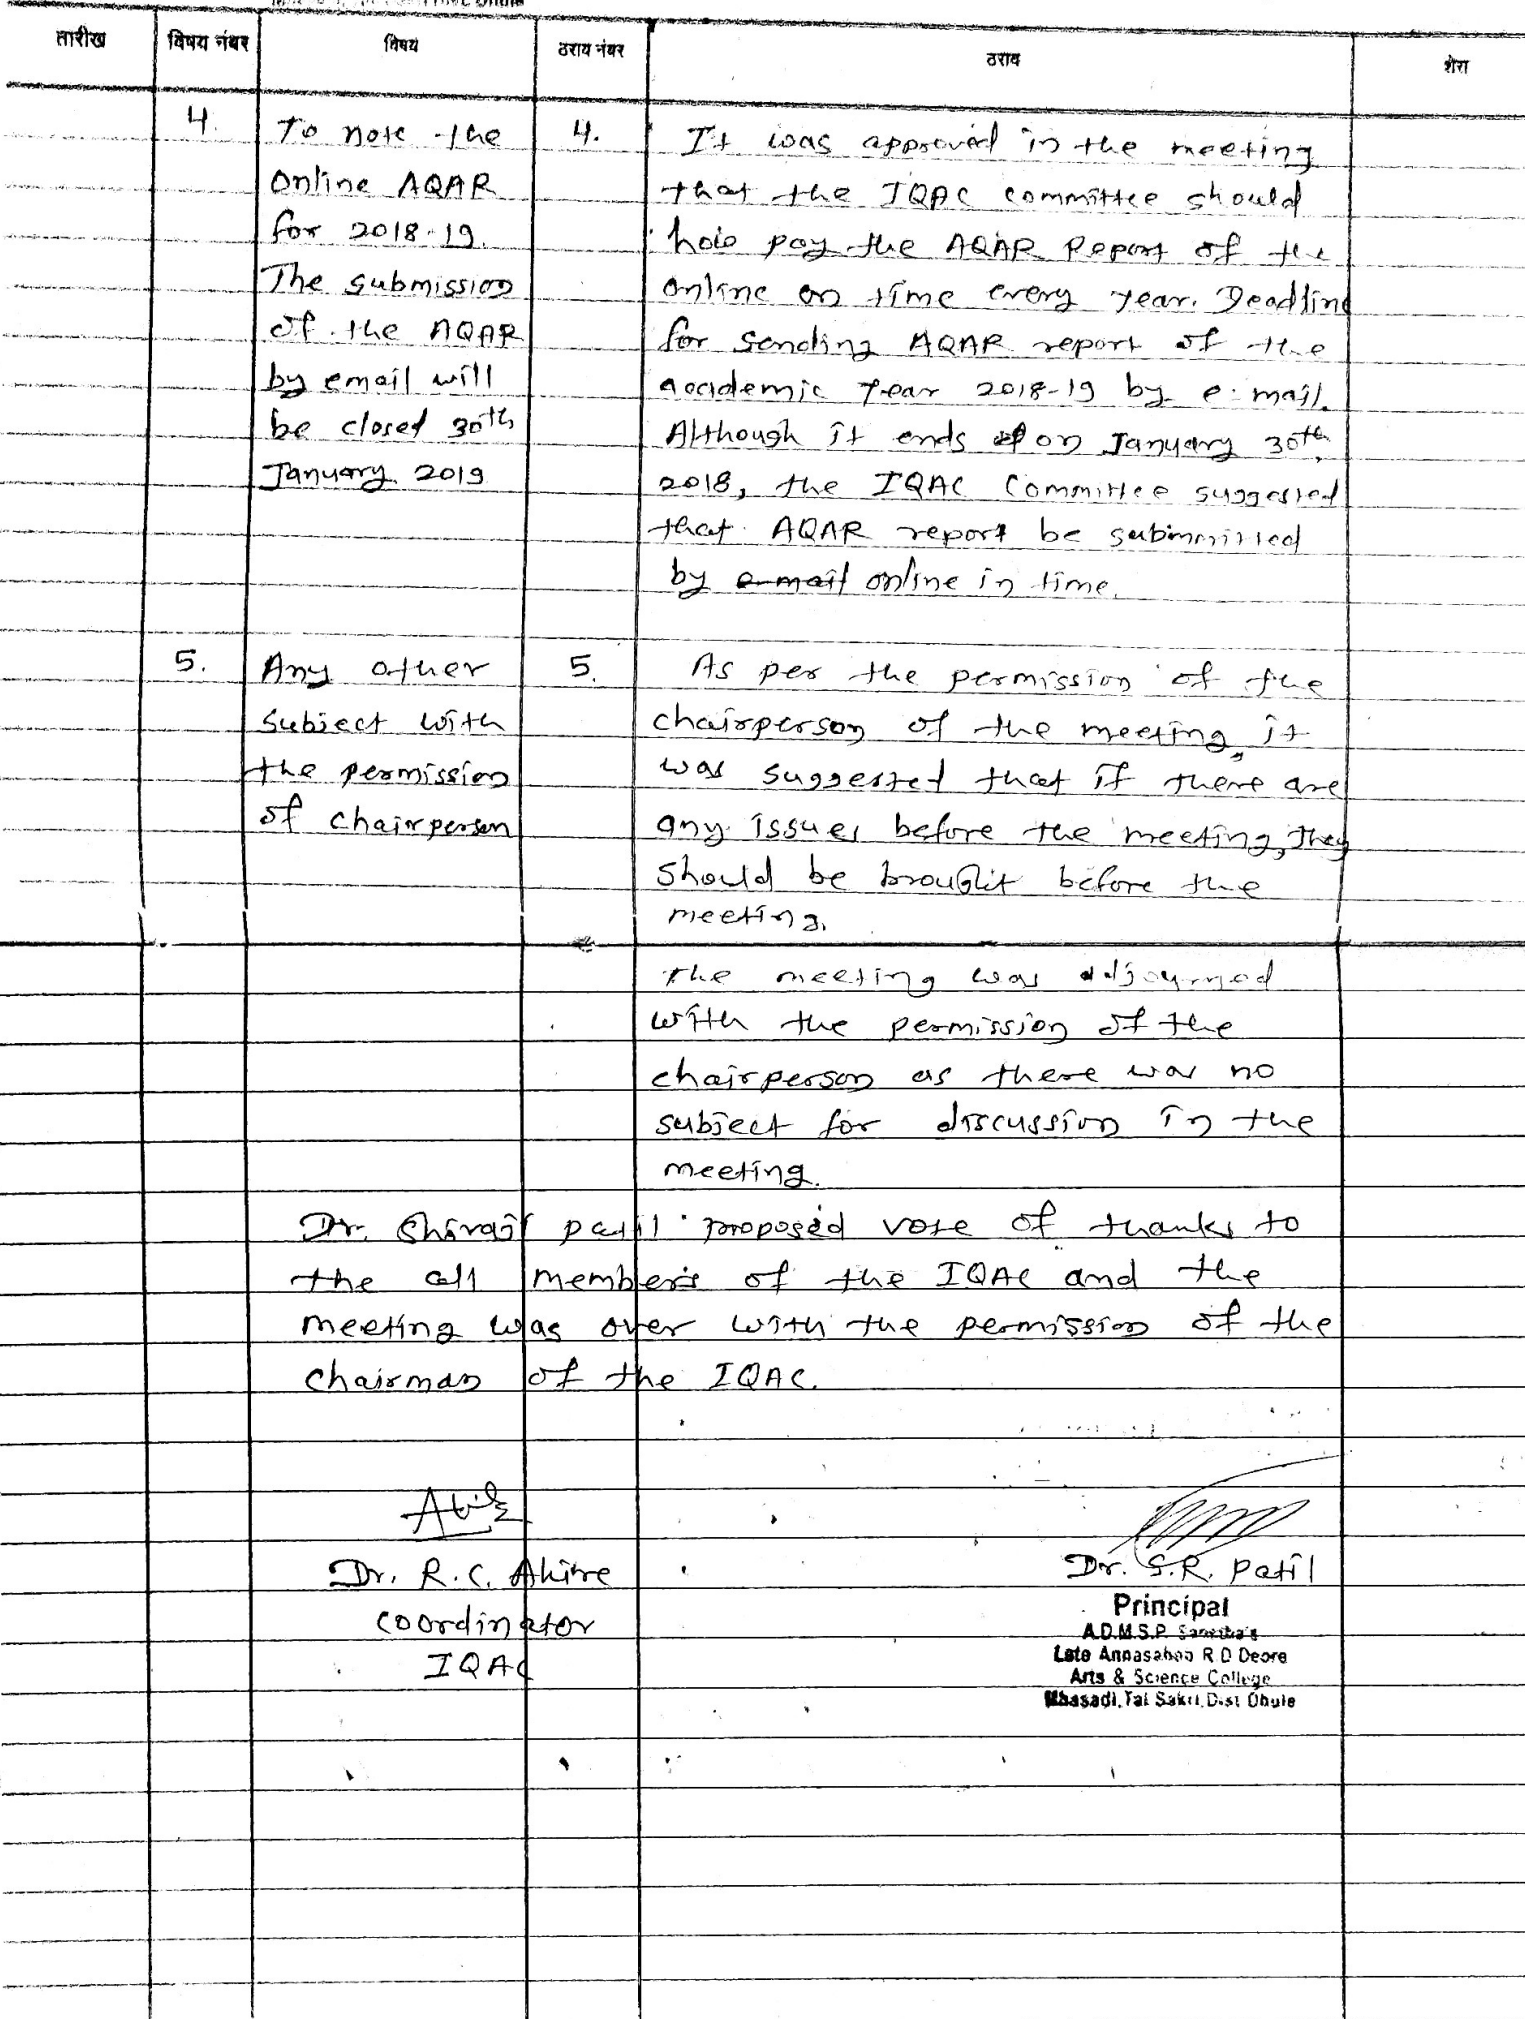 तारीख विषय नंबर विषय ठराव नंबर ठराव शेरा
4. To note the
Online AQAR
for 2018-19.
The submission
of the AQAR
by email will
be closed 30th
January 2019
4. It was approved in the meeting
that the IQAC committee should
pay the AQAR Report of the
online on time every year. Deadline
for sending AQAR report of the
academic year 2018-19 by e-mail.
Although it ends on January 30th,
2018, the IQAC Committee suggested
that AQAR report be submitted
by e-mail online in time.
5. Any other
subject with
the permission
of chairperson
5. As per the permission of the
chairperson of the meeting, it
was suggested that if there are
any issues before the meeting, they
should be brought before the
meeting.
The meeting was adjourned
with the permission of the
chairperson as there was no
subject for discussion in the
meeting.
Dr. Shivaji patil proposed vote of thanks to
the all members of the IQAC and the
meeting was over with the permission of the
Chairman of the IQAC.
Dr. R.C. Ahire
Coordinator
IQAC
Dr. S.R. Patil
Principal
A.D.M.S.P. Sanstha's
Late Annasaheb R D Deore
Arts & Science College
Mhasadi, Tal Sakri, Dist Dhule